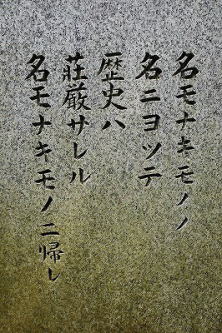 名モナキモノノ
名ニヨツテ
歴史ハ
荘厳サレル
名モナキモノニ帰レ